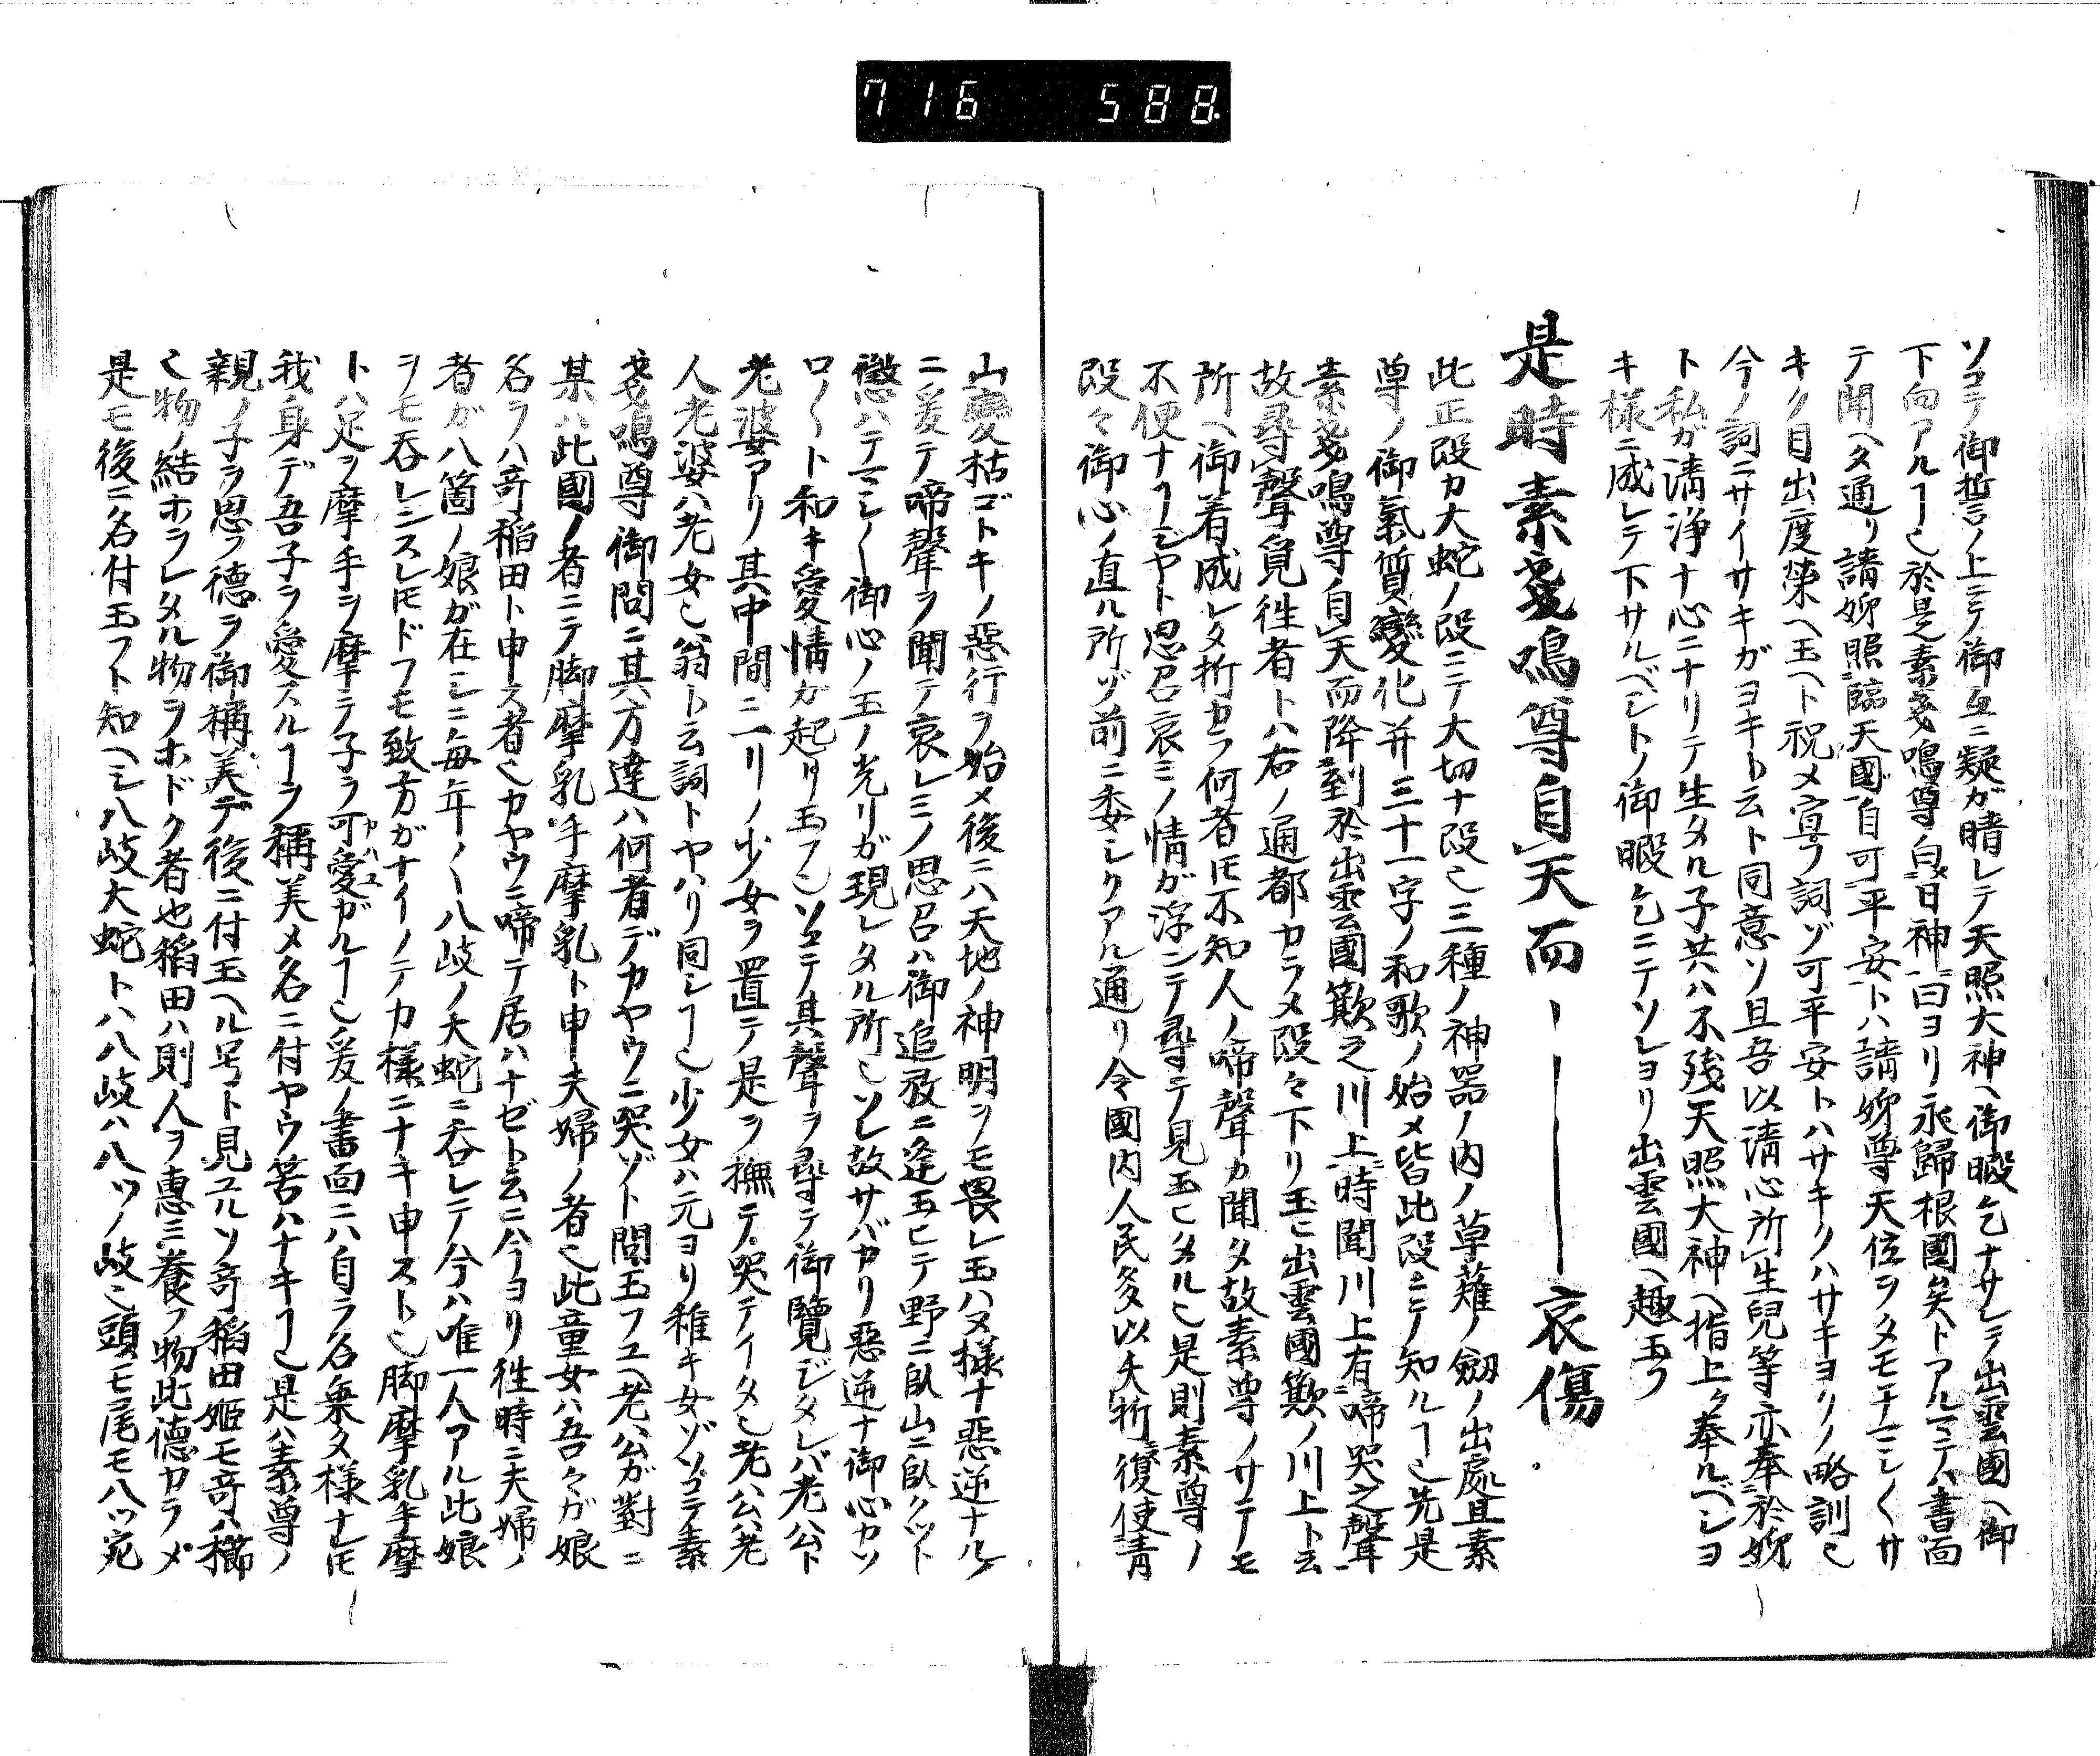 716 588
ソコテ御誓ノ上ニテ御互ニ疑ガ晴レテ天照大神ヘ御暇乞ナサレテ出雲國ヘ御
下向アルヿ也於是素戔嗚尊白日神曰ヨリ永歸根國矣トアルマテハ書面
テ聞ヘタ通リ請姉照臨天國自可平安トハ請姉尊天位ヲタモチマシ〱サ
キク目出度榮ヘ玉ヘト祝メ宣フ詞ゾ可平安トハサキクハサキヨクノ略訓也
今ノ詞ニサイサキガヨキト云ト同意ソ且吾以清心所生兒等亦奉於姉
ト私カ清浄ナ心ニナリテ生タル子共ハ不残天照大神ヘ指上ケ奉ルベシヨ
キ様ニ成レテ下サルベシトノ御暇乞ニテソレヨリ出雲國ヘ趣玉フ
是時素戔嗚尊自天而 哀傷
此正段カ大蛇ノ段ニテ大切ナ段也三種ノ神器ノ内ノ草薙ノ劔ノ出處且素
尊ノ御氣質變化并三十一字ノ和歌ノ始メ皆此段ニテ知ルヿ也先是
素戔嗚尊自天而降到於出雲國簸之川上時聞川上有啼哭之聲
故尋聲覓徃者トハ右ノ通都カラメ段々下リ玉ヒ出雲國簸ノ川上ト云
所ヘ御着成レタ折カラ何者トモ不知人ノ啼聲カ聞タ故素尊ノサテモ
不便ナヿジヤト思召哀ミノ情ガ浮ンテ尋テ見玉ヒタル也是則素尊ノ
段々御心ノ直ル所ゾ前ニ委シクアル通リ令國内人民多以夭折復使青
山變枯ゴトキノ惡行ヲ始メ後ニハ天地ノ神明ヲモ畏レ玉ハヌ様ナ惡逆ナルカ
ニ爰テ啼聲ヲ聞テ哀レミノ思召ハ御追放ニ逢玉ヒテ野ニ臥山ニ臥クツト
懲ハテマシ〱御心ノ玉ノ光リガ現レタル所也ソレ故サバカリ惡逆ナ御心カソ
ロ〱ト和キ愛情カ起リ玉フ也ソコテ其聲ヲ尋テ御覽ジタレバ老公ト
老婆アリ其中間ニ一リノ少女ヲ置テ是ヲ撫テ哭テイタ也老公ハ老
人老婆ハ老女也翁ト云詞トヤハリ同シヿ也少女ハ元ヨリ稚キ女ゾソコテ素
戔嗚尊御問ニ其方達ハ何者デカヤウニ哭ゾト問玉フユヘ老公ガ對ニ
某ハ此國ノ者ニテ脚摩乳手摩乳ト申ー夫婦ノ者也此童女ハ吾々ガ娘
名ヲハ奇稲田ト申ス者也カヤウニ啼テ居ハナゼト云ニ今ヨリ徃時ニ夫婦ノ
者ガ八箇ノ娘ガ在シニ毎年〱八岐ノ大蛇ニ呑レテ今ハ唯一人アル此娘
ヲモ呑レンスレトモドフモ致方ガナイノテカ様ニナキ申ストヒ脚摩乳手摩
トハ足ヲ摩手ヲ摩テ子ヲ可愛ガルヿ也爰ノ書面ニハ自ラ名乗タ様ナレトモ
我身デ吾子ヲ愛スルヿヲ稱美メ名ニ付ヤウ苦ハナキヿ也是ハ素尊ノ
親ノ子ヲ思フ徳ヲ御稱美デ後ニ付玉ヘル号ト見ユルソ奇稲田姫モ奇ハ櫛
也物ノ結ホヲレタル物ヲホドク者也稲田ハ則人ヲ惠ミ養フ物此徳カラメ
是モ後ニ名付玉フト知ヘシ八岐大蛇トハ八岐ハ八ツノ岐也頭モ尾モ八ツ宛